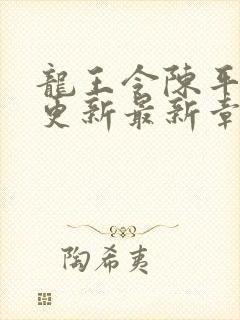 龍王令陳平
更新最新章
陶希夷